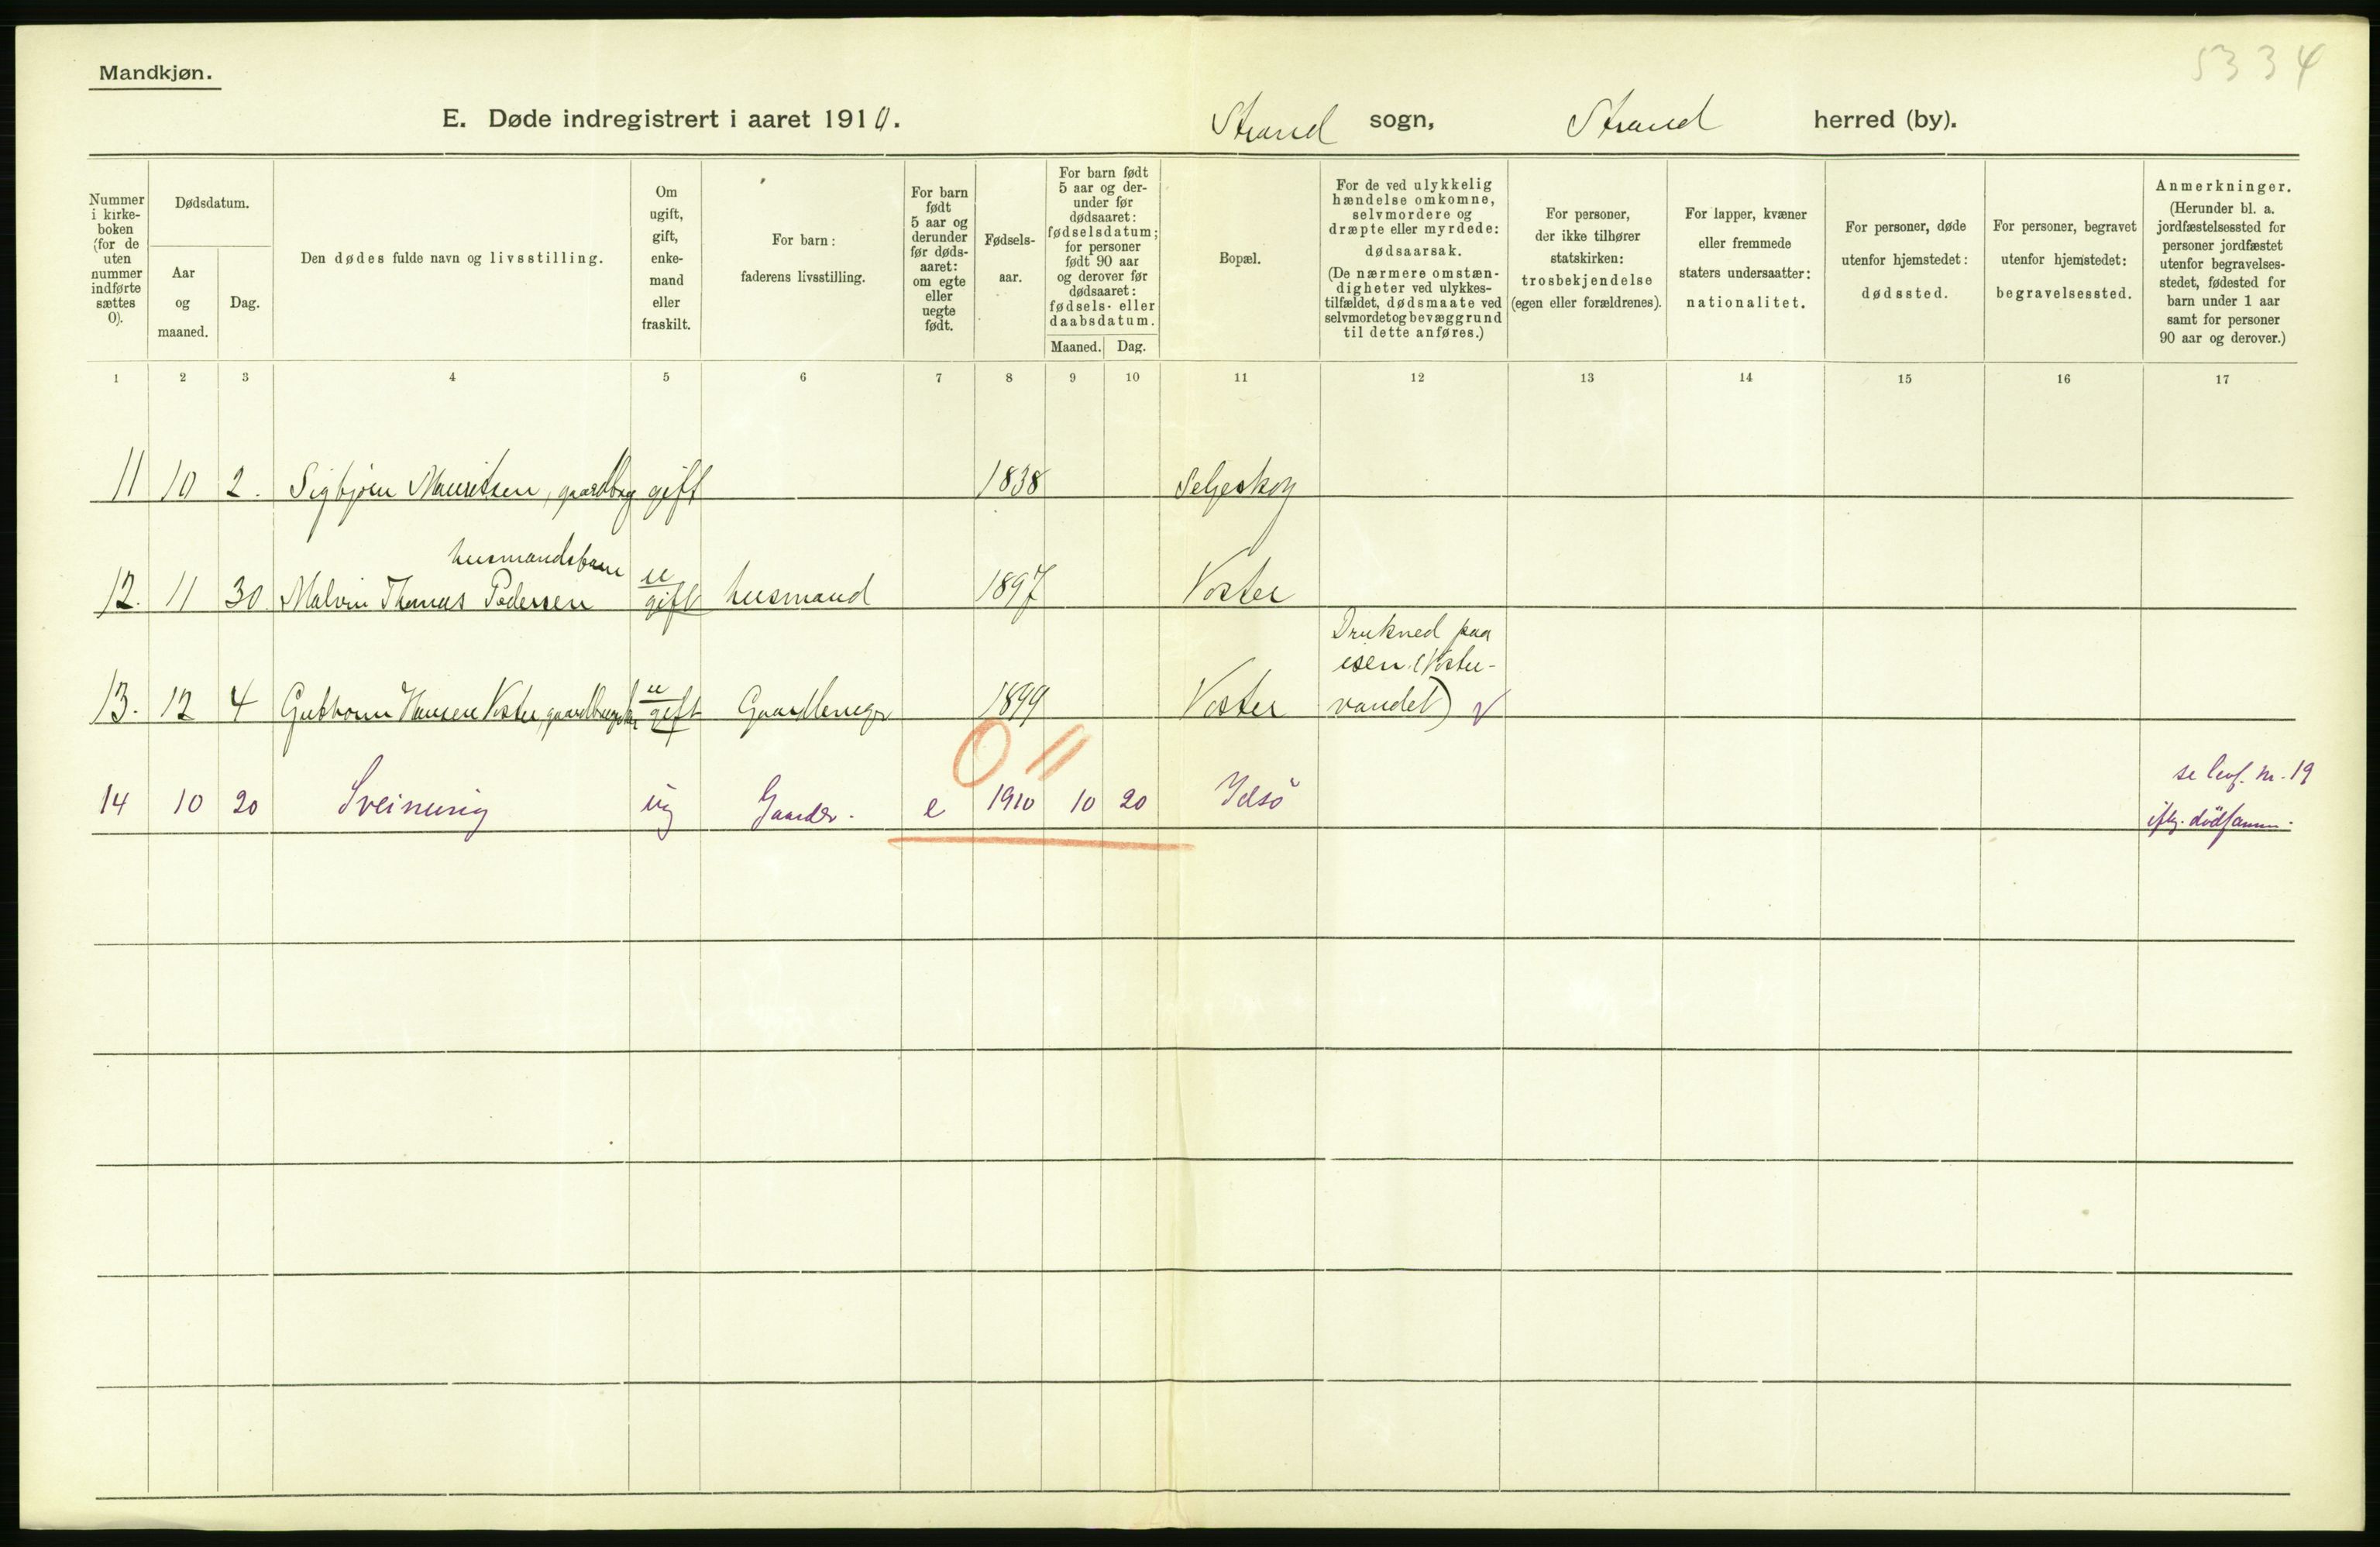 5334
Mandkjøn.
E. Døde indregistrert i aaret 1910. Strand sogn, Strand herred (by).
Nummer i kirke- boken (for de uten nummer indførte sættes 0).
Dødsdatum.
Aar og maaned.
Dag.
Den dødes fulde navn og livsstilling.
Om ugift, gift, enke- mand eller fraskilt.
For barn: faderens livsstilling.
For barn født 5 aar og derunder før døds- aaret: om egte eller uegte født.
Fødsels- aar.
For barn født 5 aar og der- under før dødsaaret: fødselsdatum; for personer født 90 aar og derover før dødsaaret: fødsels- eller daabsdatum.
Maaned. Dag.
Bopæl.
For de ved ulykkelig hændelse omkomne, selvmordere og dræpte eller myrdede: dødsaarsak. (De nærmere omstæn- digheter ved ulykkes- tilfældet, dødsmaate ved selvmordet og bevæggrund til dette anføres.)
For personer, der ikke tilhører statskirken: trosbekjendelse (egen eller forældrenes).
For lapper, kvæner eller fremmede staters undersaatter: nationalitet.
For personer, døde utenfor hjemstedet: dødssted.
For personer, begravet utenfor hjemstedet: begravelsessted.
Anmerkninger. (Herunder bl. a. jordfæstelsessted for personer jordfæstet utenfor begravelses- stedet, fødested for barn under 1 aar samt for personer 90 aar og derover.)
1 2 3 4 5 6 7 8 9 10 11 12 13 14 15 16 17
11 10 2. Sigbjørn Mauritsen, gaardbrg gift 1838 Seljeskog
husmandsbarn
12. 11 30 Malvin Thomas Pedersen u gift husmand 1897 Voster
Drukned paa
isen (Voster-
13. 12 4 Guthorm Hansen Voster, u gift Gaardbruger 1899 Voster vandet) v
0 11
se levf. nr. 19
14 10 20 Sveinung ug Gaardbr. e 1910 10 20 Idsö
iflg. dödfanm.